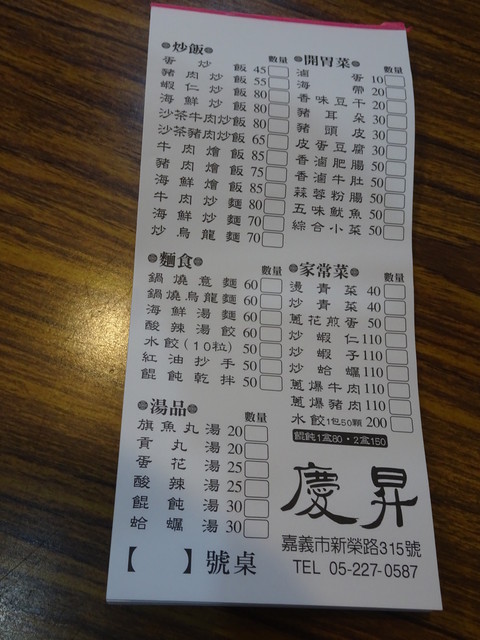 炒飯 數量
蛋炒飯 45
豬肉炒飯 55
蝦仁炒飯 80
海鮮炒飯 80
沙茶牛肉炒飯 80
沙茶豬肉炒飯 65
牛肉燴飯 85
豬肉燴飯 75
海鮮燴飯 85
牛肉炒麵 80
海鮮炒麵 70
炒烏龍麵 70
麵食 數量
鍋燒意麵 60
鍋燒烏龍麵 60
海鮮湯麵 60
酸辣湯餃 60
水餃(10粒) 50
紅油抄手 50
餛飩乾拌 50
湯品 數量
旗魚丸湯 20
貢丸湯 20
蛋花湯 25
酸辣湯 25
餛飩湯 30
蛤蠣湯 30
【 】號桌
開胃菜 數量
滷蛋 10
海帶 20
香味豆干 20
豬耳朵 30
豬頭皮 30
皮蛋豆腐 30
香滷肥腸 50
香滷牛肚 50
蒜蓉粉腸 50
五味魷魚 50
綜合小菜 50
家常菜 數量
燙青菜 40
炒青菜 40
蔥花煎蛋 50
炒蝦仁 110
炒蝦子 110
炒蛤蠣 110
蔥爆牛肉 110
蔥爆豬肉 110
水餃1包50顆 200
餛飩1盒80・2盒150
慶昇
嘉義市新榮路315號
TEL 05-227-0587